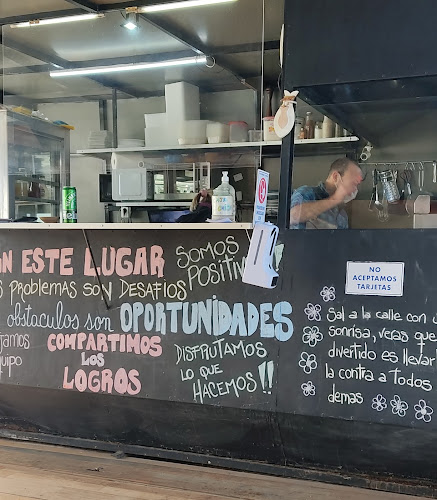 EN ESTE LUGAR
SOMOS
POSITIV
PROBLEMAS SON DESAFIOS
obstaculos son OPORTUNIDADES
COMPARTIMOS
LOS
LOGROS
DISFRUTAMOS
LO QUE
HACEMOS!!
NO
ACEPTAMOS
TARJETAS
Sal a la calle con u
sonrisa, veras que
divertido es llevar
la contra a todos
demas